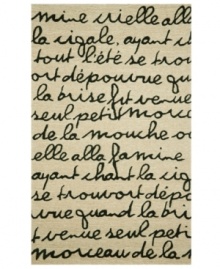 mine rielle alla
la cigale, ayant ch
tout l'été se trou
ort dépourvue qua
la brise fut venue
seul petit morceau
de la mouche ou
elle alla famine
ayant chant la cig
se trouvort dépo
vue quand la bri
t venue seul peti
morceau de la m